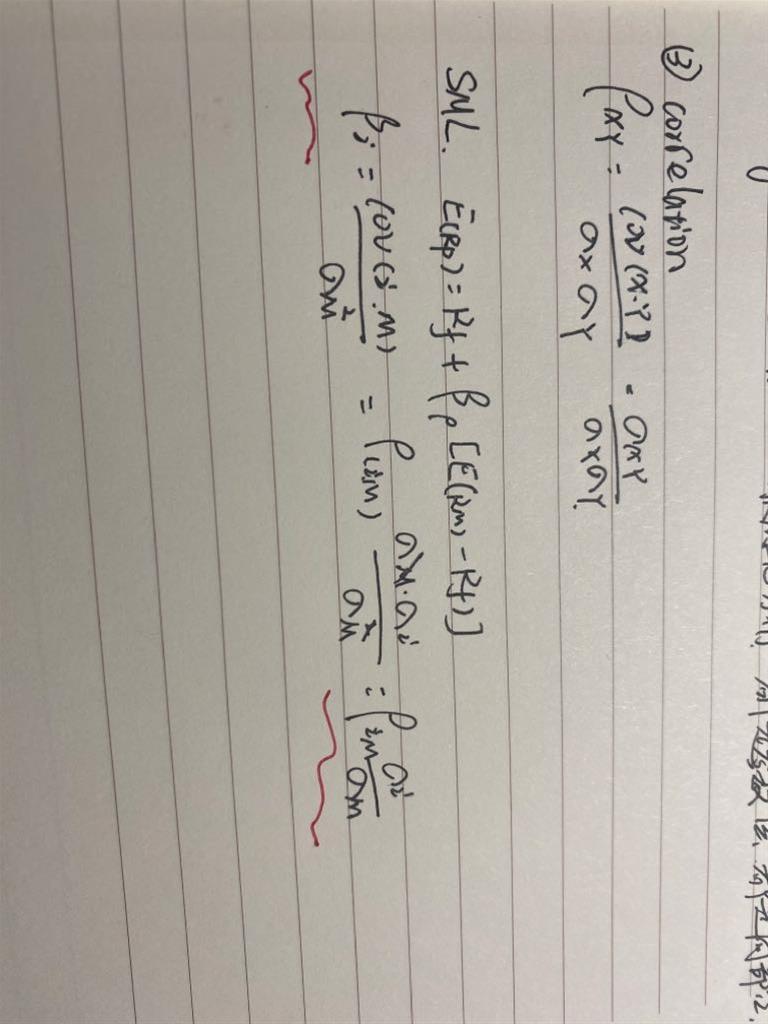 ③ correlation
ρxy = Cov(x.Y) / σx σY = σxY / σxσY.
SML. E(Rp) = Rf + βp [E(Rm) - Rf)]
βi = Cov(i.M) / σM² = ρ(iM) σM.σi / σM² = ρiM σi / σM